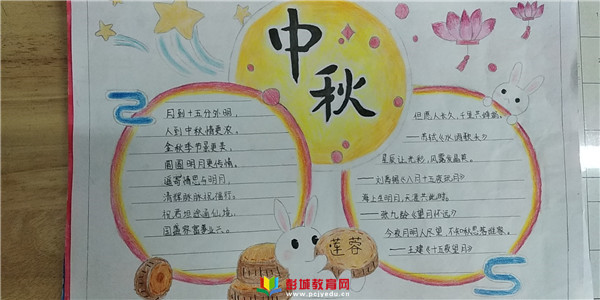 中秋
月到十五分外明，
人到中秋情更浓。
金秋季节景更美，
圆圆明月更传情。
遥寄情思与明月，
清辉脉脉祝福行。
祝君坦途遍仙境，
团圆舒畅事业兴。
但愿人长久，千里共婵娟。
——苏轼《水调歌头》
星辰让光彩，风露发晶英。
——刘禹锡《八月十五夜玩月》
海上生明月，天涯共此时。
——张九龄《望月怀远》
今夜月明人尽望，不知秋思落谁家。
——王建《十五夜望月》
莲蓉
彭城教育网
www.pcjyedu.cn